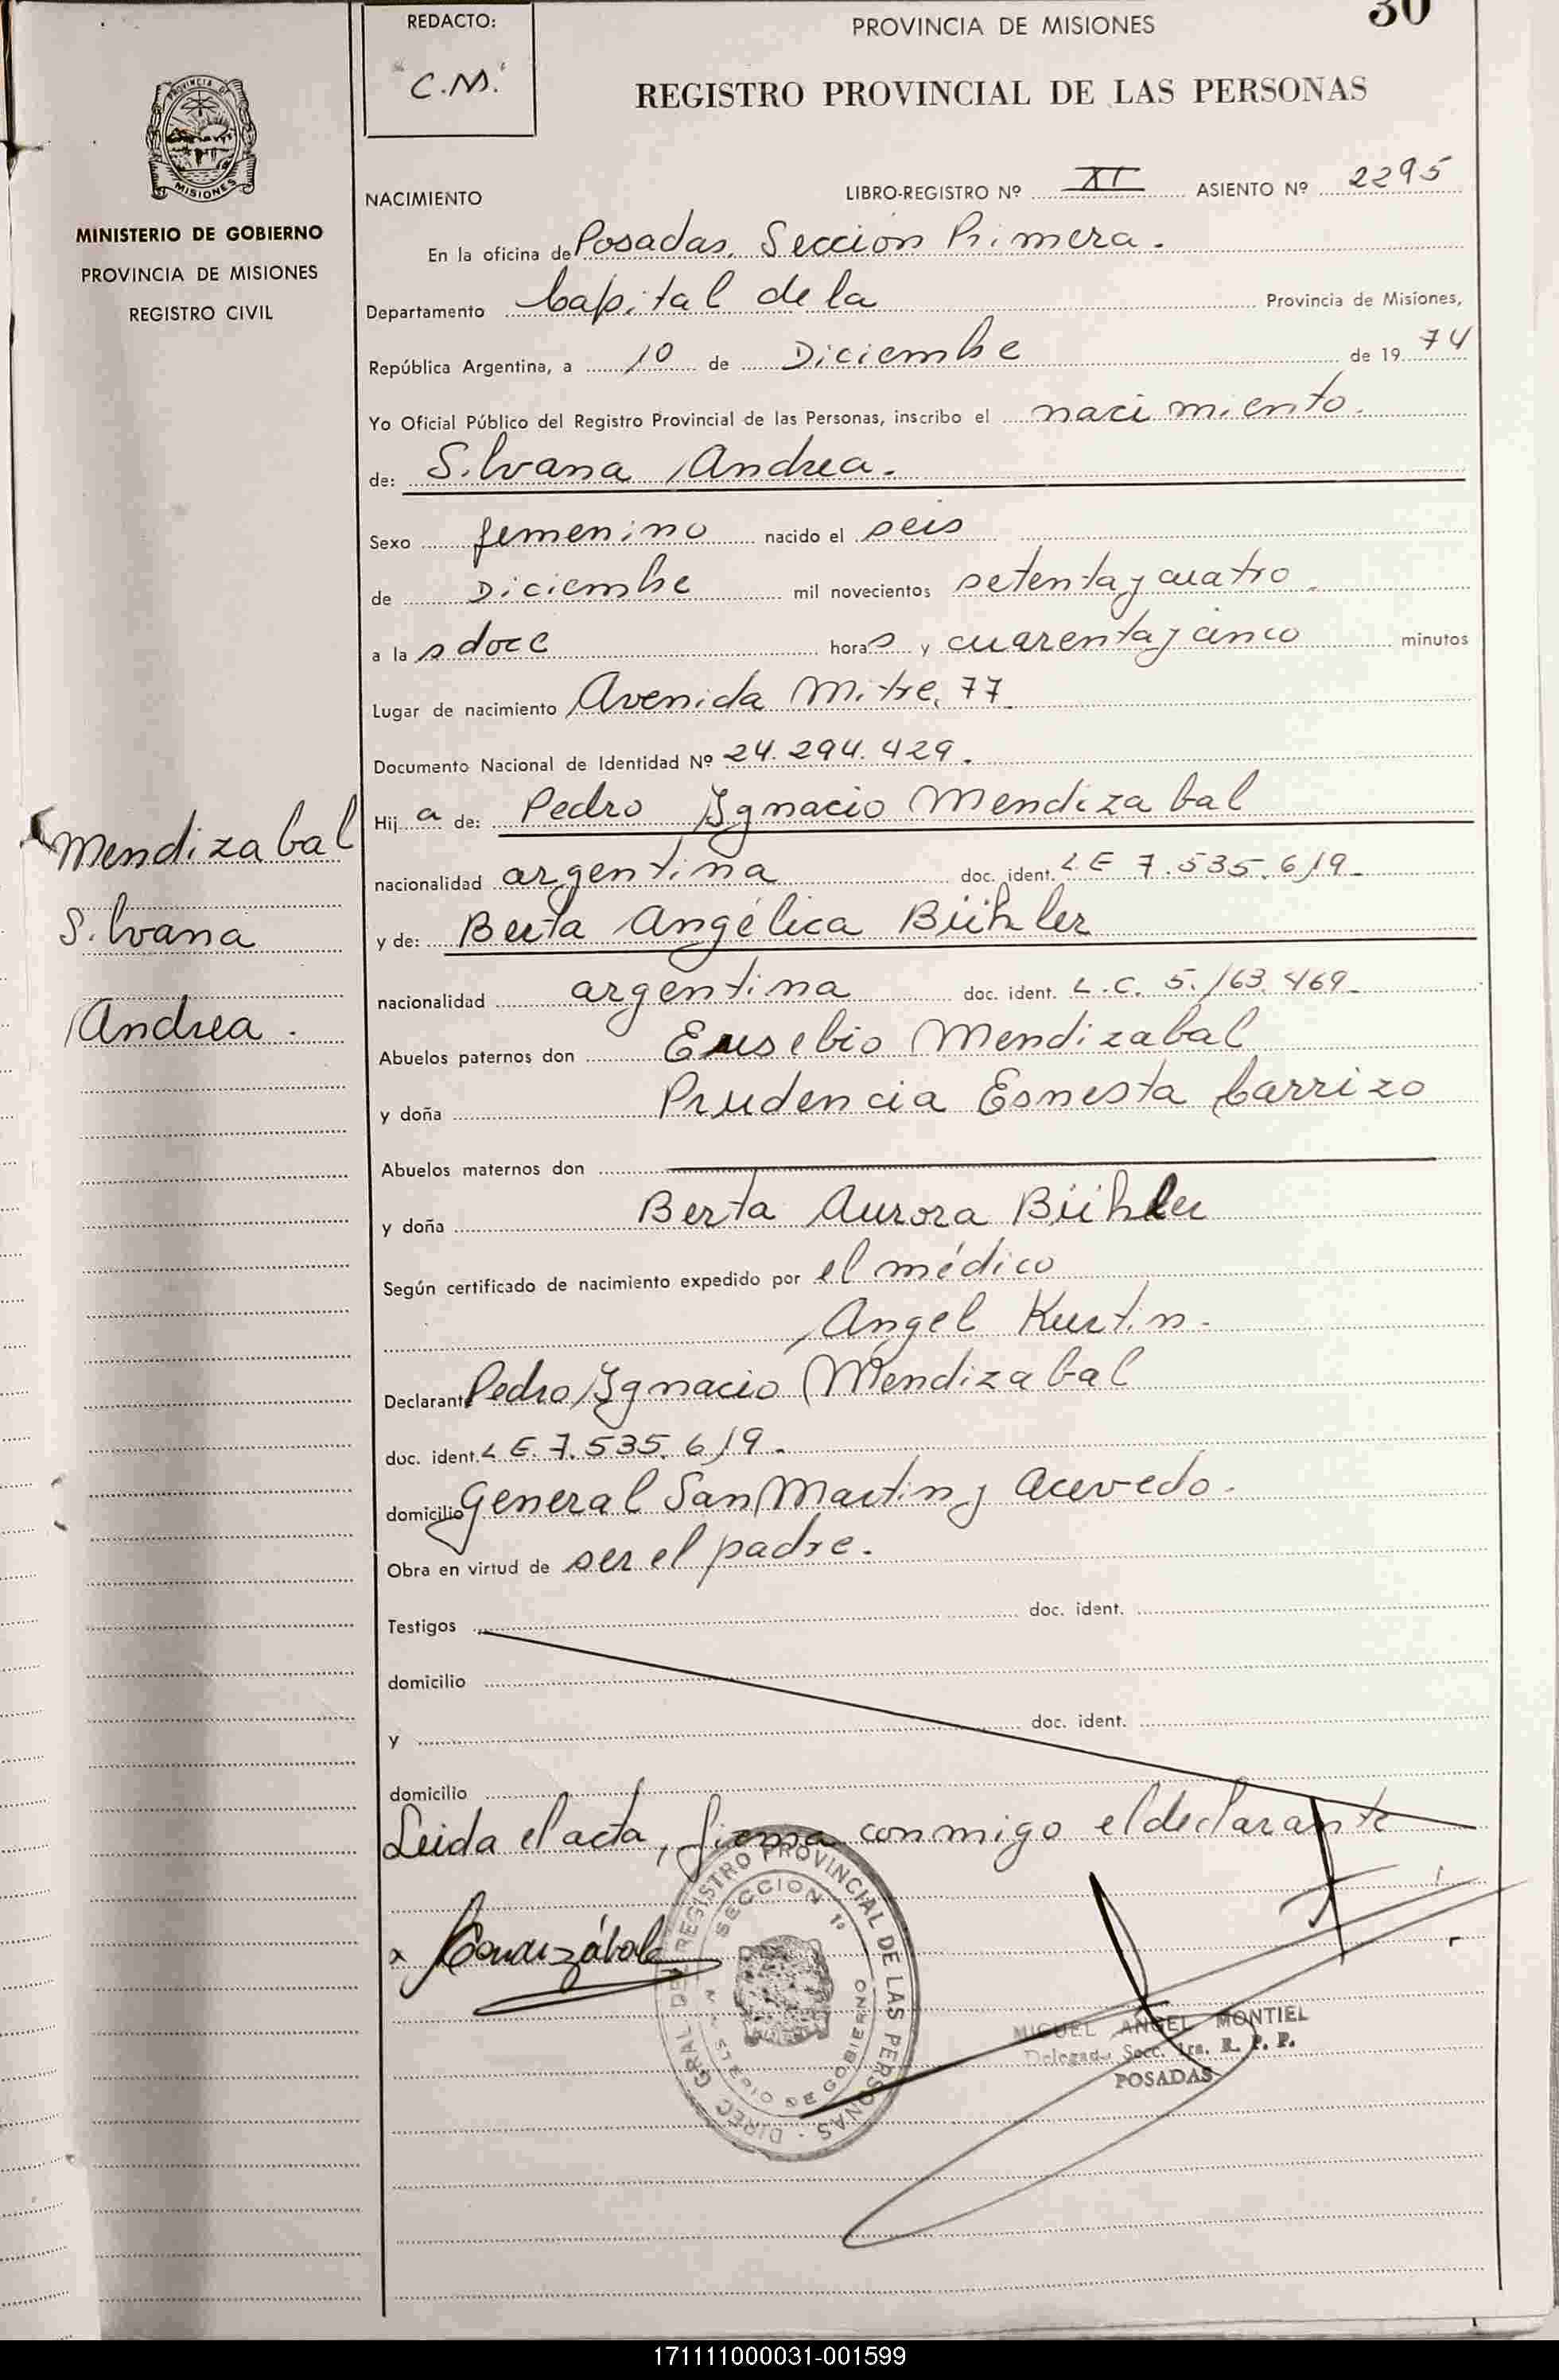 REDACTO:
"C.M."
PROVINCIA DE MISIONES
30
REGISTRO PROVINCIAL DE LAS PERSONAS
PROVINCIA DE
MISIONES
MINISTERIO DE GOBIERNO
PROVINCIA DE MISIONES
REGISTRO CIVIL
NACIMIENTO LIBRO-REGISTRO Nº XI ASIENTO Nº 2295
En la oficina de Posadas. Sección Primera.
Departamento Capital de la Provincia de Misiones,
República Argentina, a 10 de Diciembre de 1974
Yo Oficial Público del Registro Provincial de las Personas, inscribo el nacimiento.
de: Silvana Andrea.
Sexo femenino nacido el seis
de Diciembre mil novecientos setenta y cuatro.
a las doce horas y cuarenta y cinco minutos
Lugar de nacimiento Avenida Mitre, 77.
Documento Nacional de Identidad Nº 24.294.429.
Hija de: Pedro Ygnacio Mendizabal
nacionalidad argentina doc. ident. L E 7.535.619.
y de: Berta Angélica Bühler
nacionalidad argentina doc. ident. L.C. 5.163.469.
Abuelos paternos don Eusebio Mendizabal
y doña Prudencia Ernesta Carrizo
Abuelos maternos don
y doña Berta Aurora Bühler
Según certificado de nacimiento expedido por el médico
Angel Kurtin.
Declarante Pedro Ygnacio Mendizabal
doc. ident. L E. 7.535.619.
domicilio General San Martin y Acevedo.
Obra en virtud de ser el padre.
Testigos doc. ident.
domicilio
y doc. ident.
domicilio
Leida el acta, firma conmigo el declarante
Mendizabal
Silvana
Andrea.
DIREC. GRAL. DEL REGISTRO PROVINCIAL DE LAS PERSONAS
SECCION 1ª
DE GOBIERNO
MIGUEL ANGEL MONTIEL
Delegado Secc. 1ra. R. P. P.
POSADAS
171111000031-001599